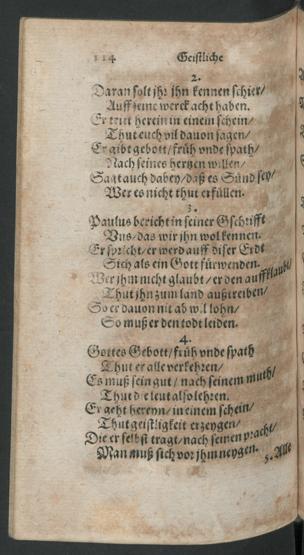 114 Geistliche
2.
Daran solt jhr jhn kennen schier/
Auff seine werck acht haben.
Er tritt herein in einem schein/
Thut euch vil dauon sagen/
Er gibt gebott/ früh vnde spath/
Nach seines hertzen willen/
Sagt auch dabey/ daß es Sünd sey/
Wer es nicht thut erfüllen.
3.
Paulus bericht in seiner Gschrifft
Vns/ das wir jhn wol kennen.
Er spricht/ er werd auff diser Erdt
Sich als ein Gott fürwenden.
Wer jhm nicht glaubt/ er den auffklaubt/
Thut jhn zum land außtreiben/
So er dauon nit ab wil lohn/
So muß er den todt leiden.
4.
Gottes Gebott/ früh vnde spath
Thut er alle verkehren/
Es muß sein gut/ nach seinem muth/
Thut die leut also lehren.
Er geht hereyn/ in einem schein/
Thut geistligkeit erzeygen/
Die er selbst tragt/ nach seinen pracht/
Man muß sich vor jhm neygen.
5. Alle